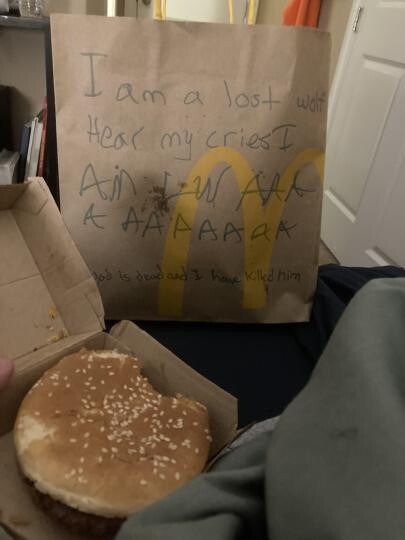 I am a lost wolf
Hear my cries I
AM
A AAAAAAA
is dead and I have killed him